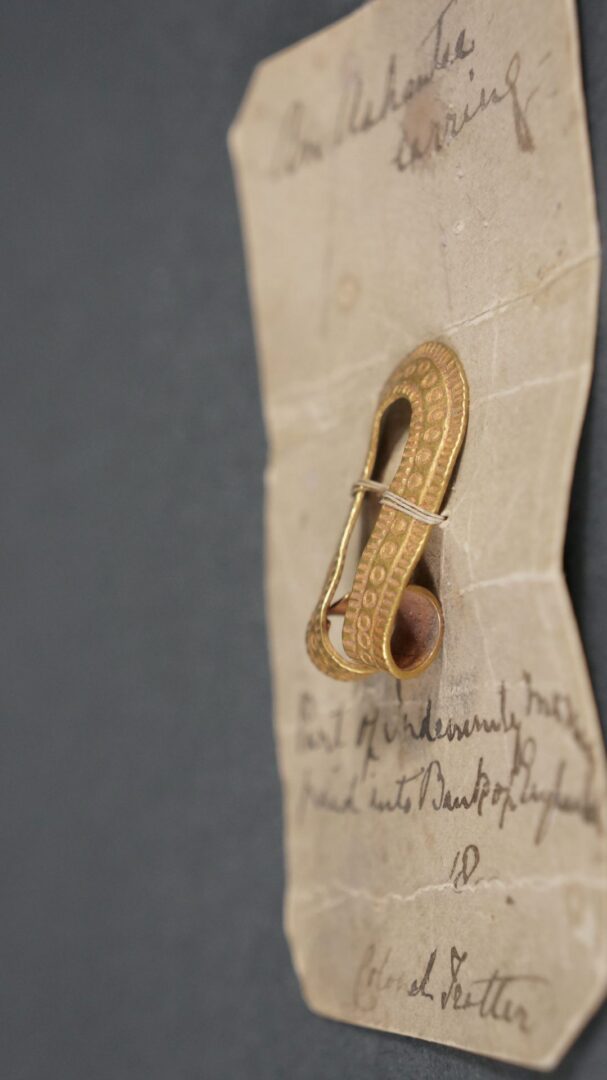 An Ashantee
earring -
Part of indemnity money
paid into Bank of England
18
Colonel Trotter